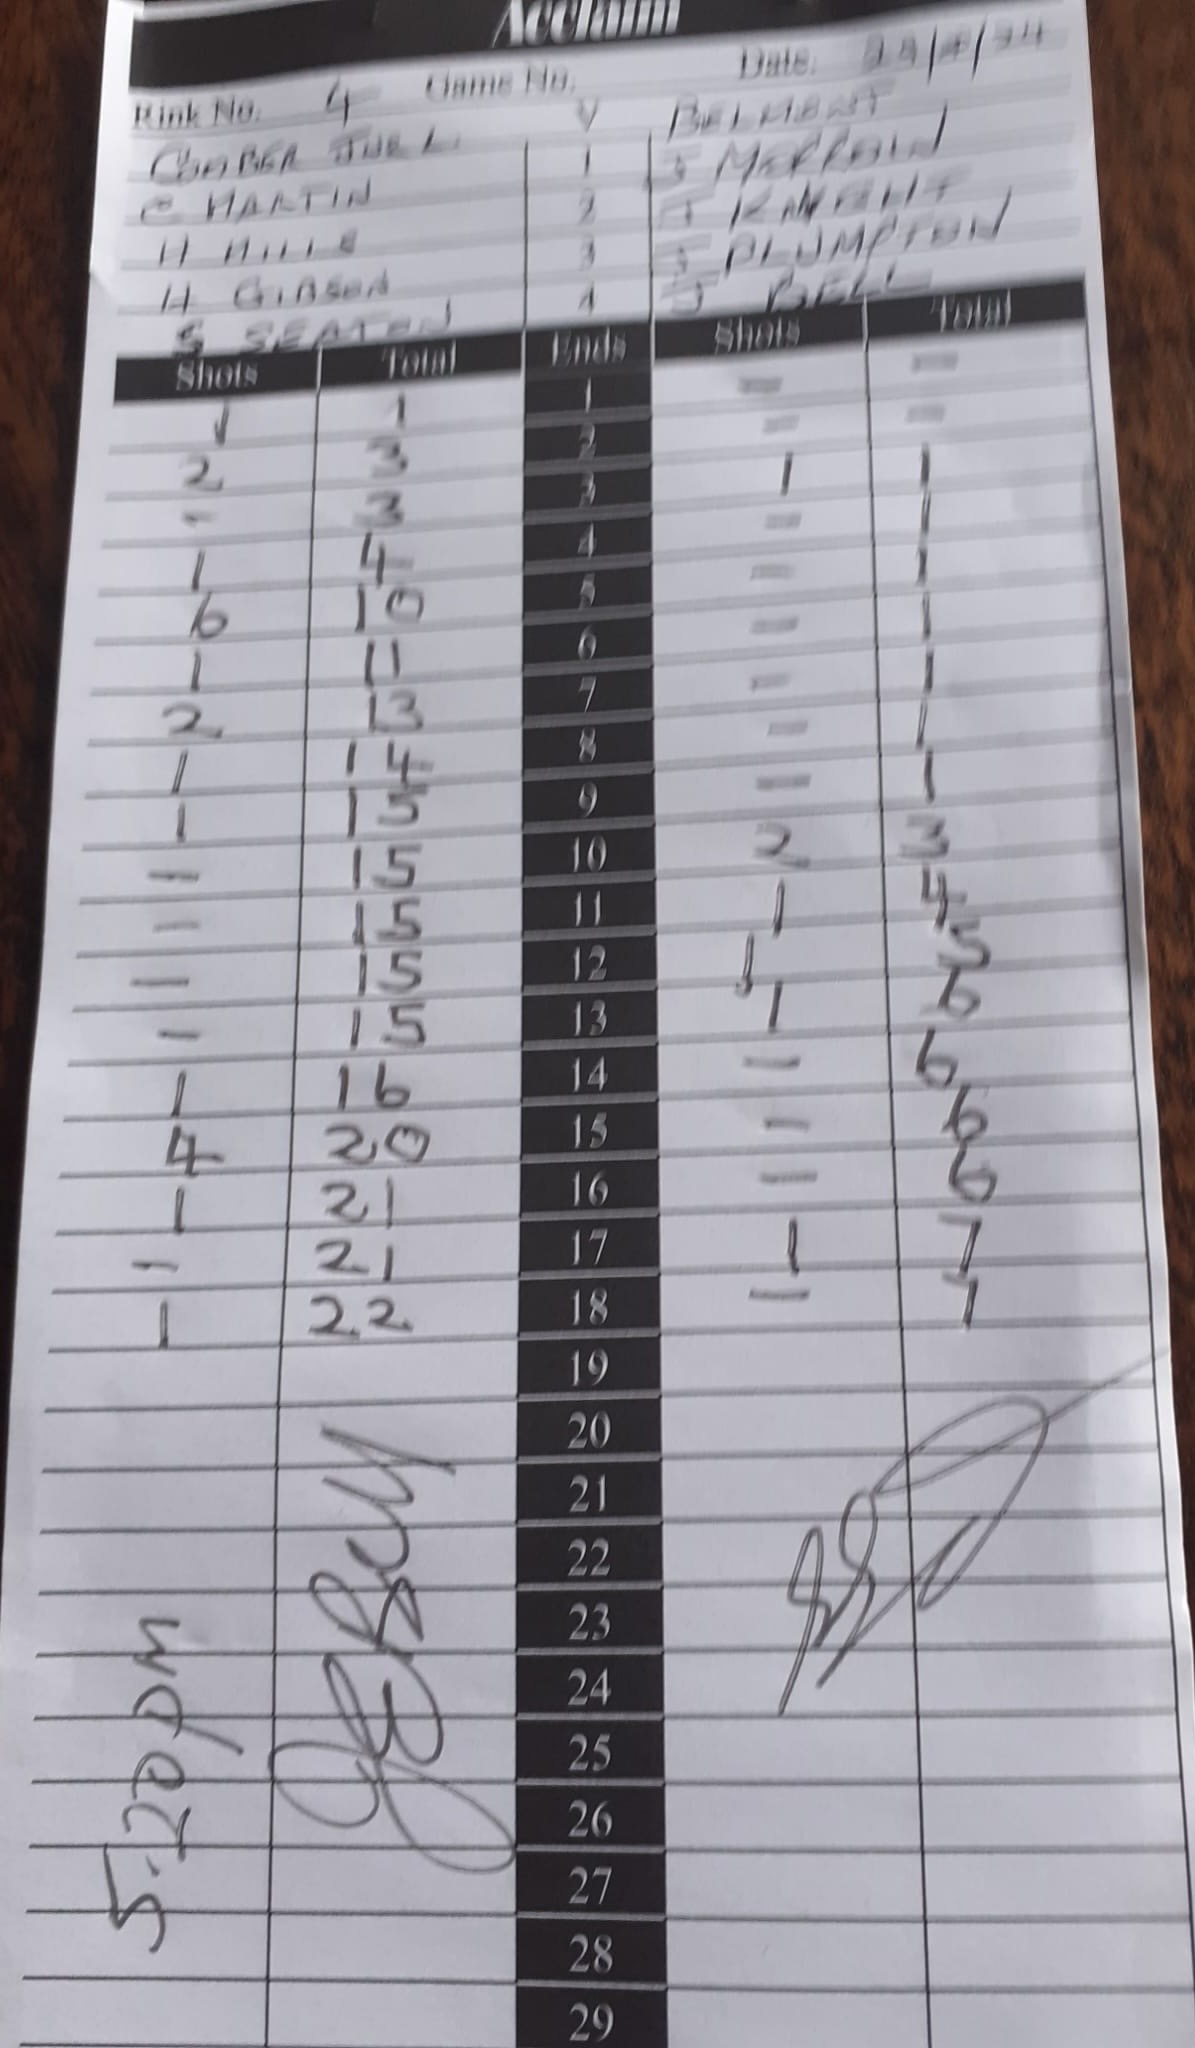 Acclaim
Rink No. 4 Game No. Date:
V BELMONT
COMBER 1
C MARTIN 2 KNIGHT
H MILLS 3 PLUMPTON
H GIBSON 4 J BELL
S SEATON
Shots Total Ends Shots Total
1 1 1 - -
2 3 2 - -
- 3 3 1 1
1 4 4 - 1
6 10 5 - 1
1 11 6 - 1
2 13 7 - 1
1 14 8 - 1
1 15 9 - 1
- 15 10 2 3
- 15 11 1 4
- 15 12 1 5
- 15 13 1 6
1 16 14 - 6
4 20 15 - 6
1 21 16 - 6
- 21 17 1 7
1 22 18 - 7
19
20
21
22
23
24
25
26
27
28
29
5.20PM